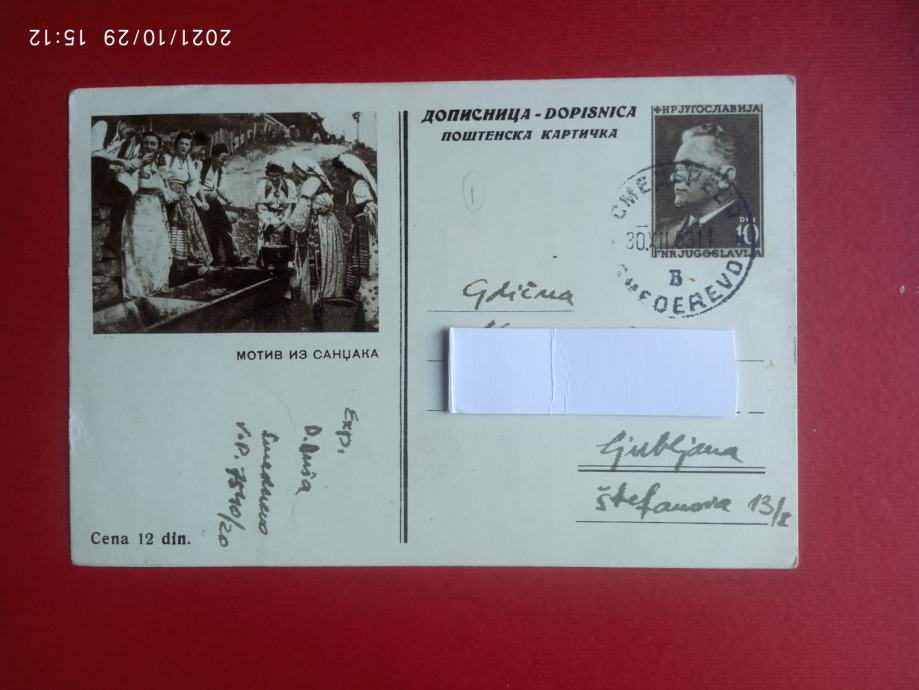 2021/10/29 15:12
ДОПИСНИЦА - DOPISNICA
ПОШТЕНСКА КАРТИЧКА
ФНР ЈУГОСЛАВИЈА
DIN
10
FNR JUGOSLAVIJA
СМЕДЕРЕВО
30.XII.53 11
В
SMEDEREVO
Gdična
МОТИВ ИЗ САНЏАКА
Exp.
Smederevo
V.P. 7540/20
Cena 12 din.
Ljubljana
Štefanova 13/I